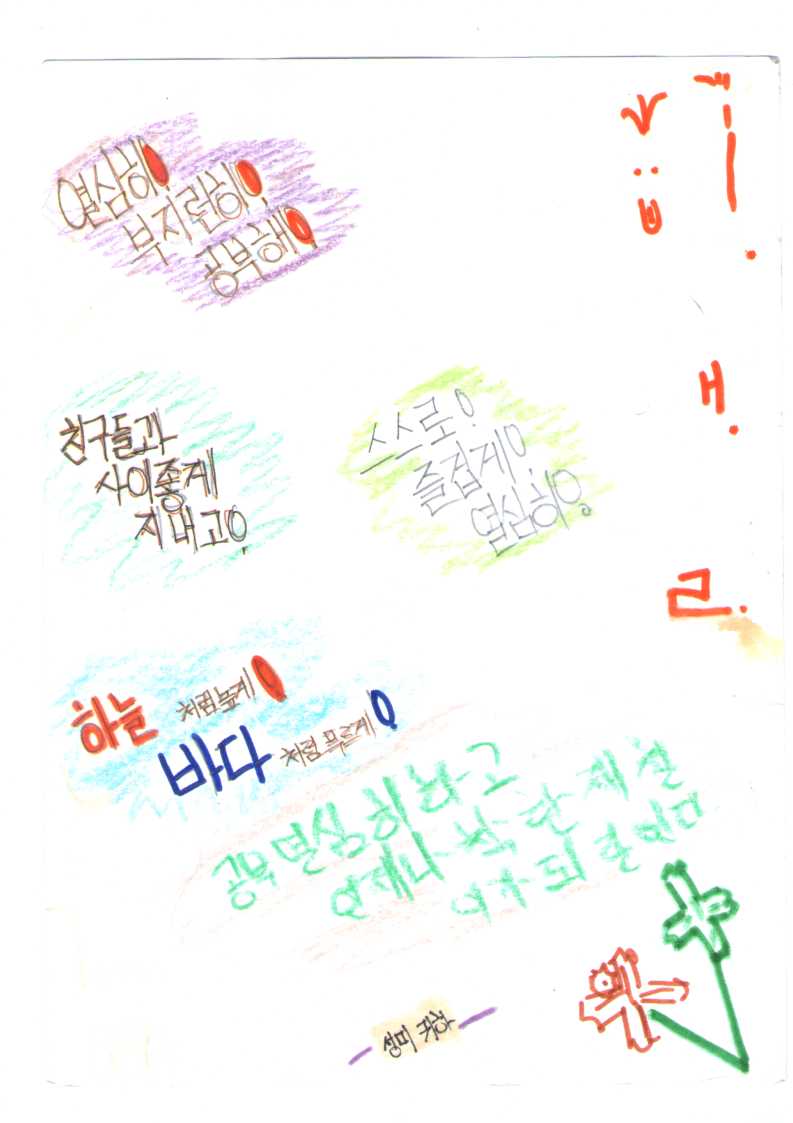 열심히!
부지런히!
공부해!
친구들과
사이좋게
지내고!
스스로!
즐겁게!
열심히!
하늘 처럼 높게!
바다 처럼 푸르게!
공부 열심히 하고
언제나 착한 제천
여가 되 길 원한다
성미 귀하